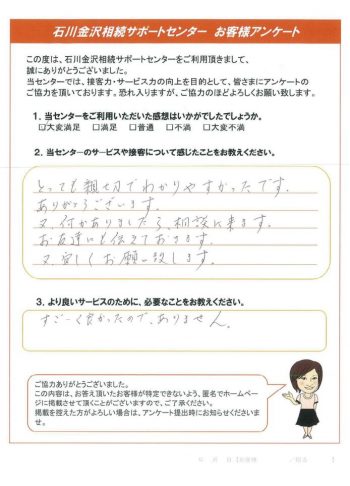 石川金沢相続サポートセンター お客様アンケート
この度は、石川金沢相続サポートセンターをご利用頂きまして、
誠にありがとうございました。
当センターでは、接客力・サービス力の向上を目的として、皆さまにアンケートの
ご協力を頂いております。恐れ入りますが、ご協力のほどよろしくお願い致します。
1. 当センターをご利用いただいた感想はいかがでしたでしょうか。
☑大変満足 □満足 □普通 □不満 □大変不満
2. 当センターのサービスや接客について感じたことをお教えください。
とっても親切でわかりやすかったです。
ありがとうございます。
又、何かありましたら、相談に来ます。
お友達にも伝えておきます。
又、宜しくお願い致します。
3. より良いサービスのために、必要なことをお教えください。
すごーく良かったので、ありません。
ご協力ありがとうございました。
この内容は、お答え頂いたお客様が特定できないよう、匿名でホームペー
ジに掲載させて頂くことがございますので、ご了承ください。
掲載を控えた方がよろしい場合は、アンケート提出時にお知らせくださいま
せ。